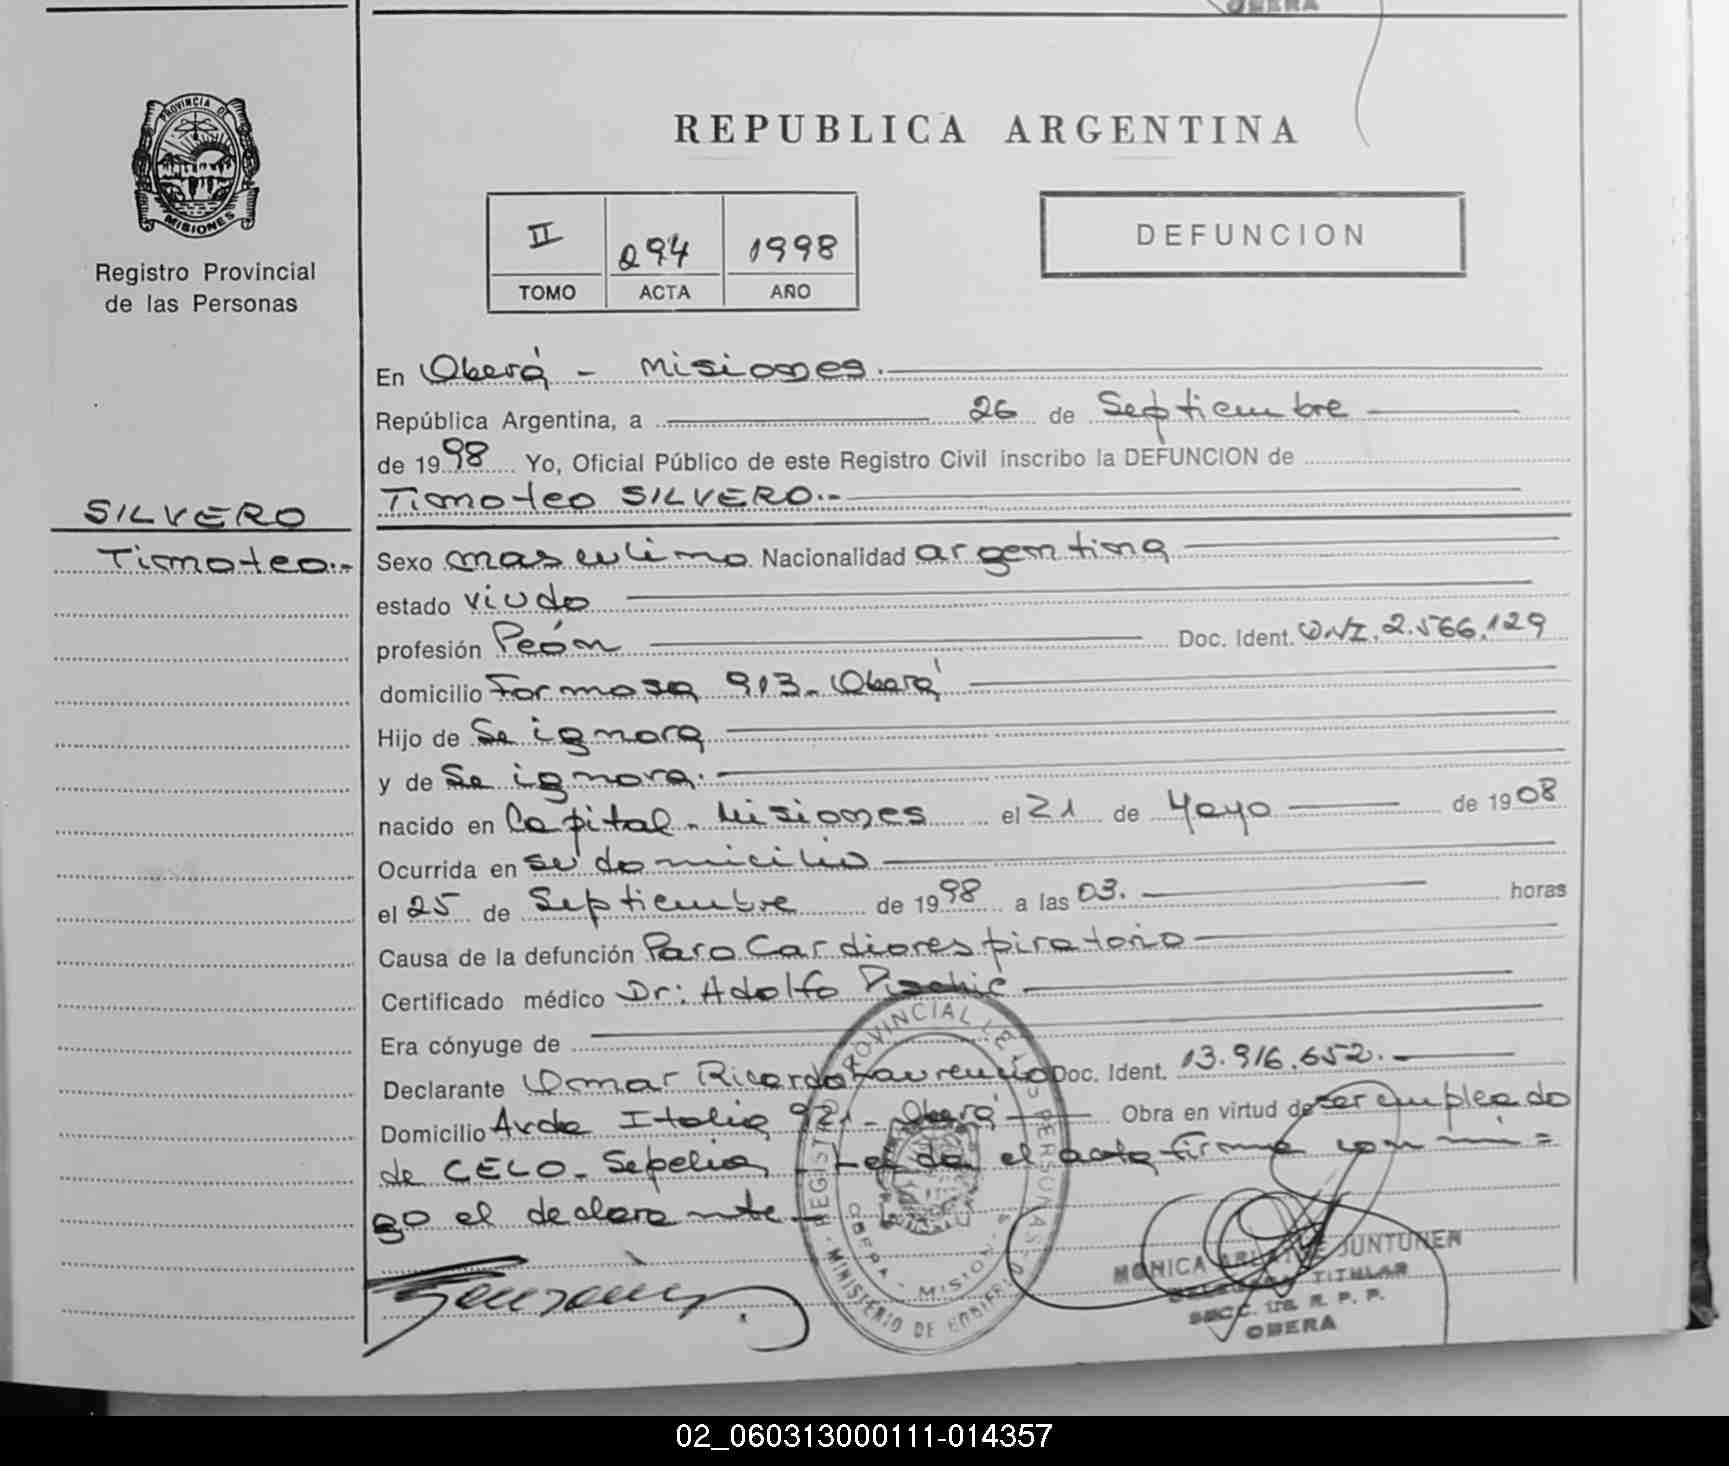 OBERA
PROVINCIA DE
MISIONES
Registro Provincial
de las Personas
REPUBLICA ARGENTINA
II 294 1998
TOMO ACTA AÑO
DEFUNCION
En Oberá - Misiones.
República Argentina, a 26 de Septiembre
de 1998 Yo, Oficial Público de este Registro Civil inscribo la DEFUNCION de
Timoteo SILVERO.-
SILVERO
Timoteo.-
Sexo masculino Nacionalidad argentina
estado viudo
profesión Peón Doc. Ident. DNI. 2.566.129
domicilio Formosa 913- Oberá
Hijo de Se ignora
y de Se ignora.
nacido en Capital - Misiones el 21 de Mayo de 1908
Ocurrida en su domicilio
el 25 de Septiembre de 1998 a las 03. horas
Causa de la defunción Paro Cardiorespiratorio
Certificado médico Dr: Adolfo
Era cónyuge de
Declarante Omar Ricardo Laurencio Doc. Ident. 13.916.652.
Domicilio Avda Italia 921 - Oberá Obra en virtud de ser empleado
de CELO - Sepelios - Leida el acta firma con mi=
go el declarante -
REGISTRO PROVINCIAL DE LAS PERSONAS
OBERA - MISIONES
MINISTERIO DE GOBIERNO
MONICA JUNTUNEN
DELEGADA TITULAR
SECC. R. P. P.
OBERA
02_060313000111-014357